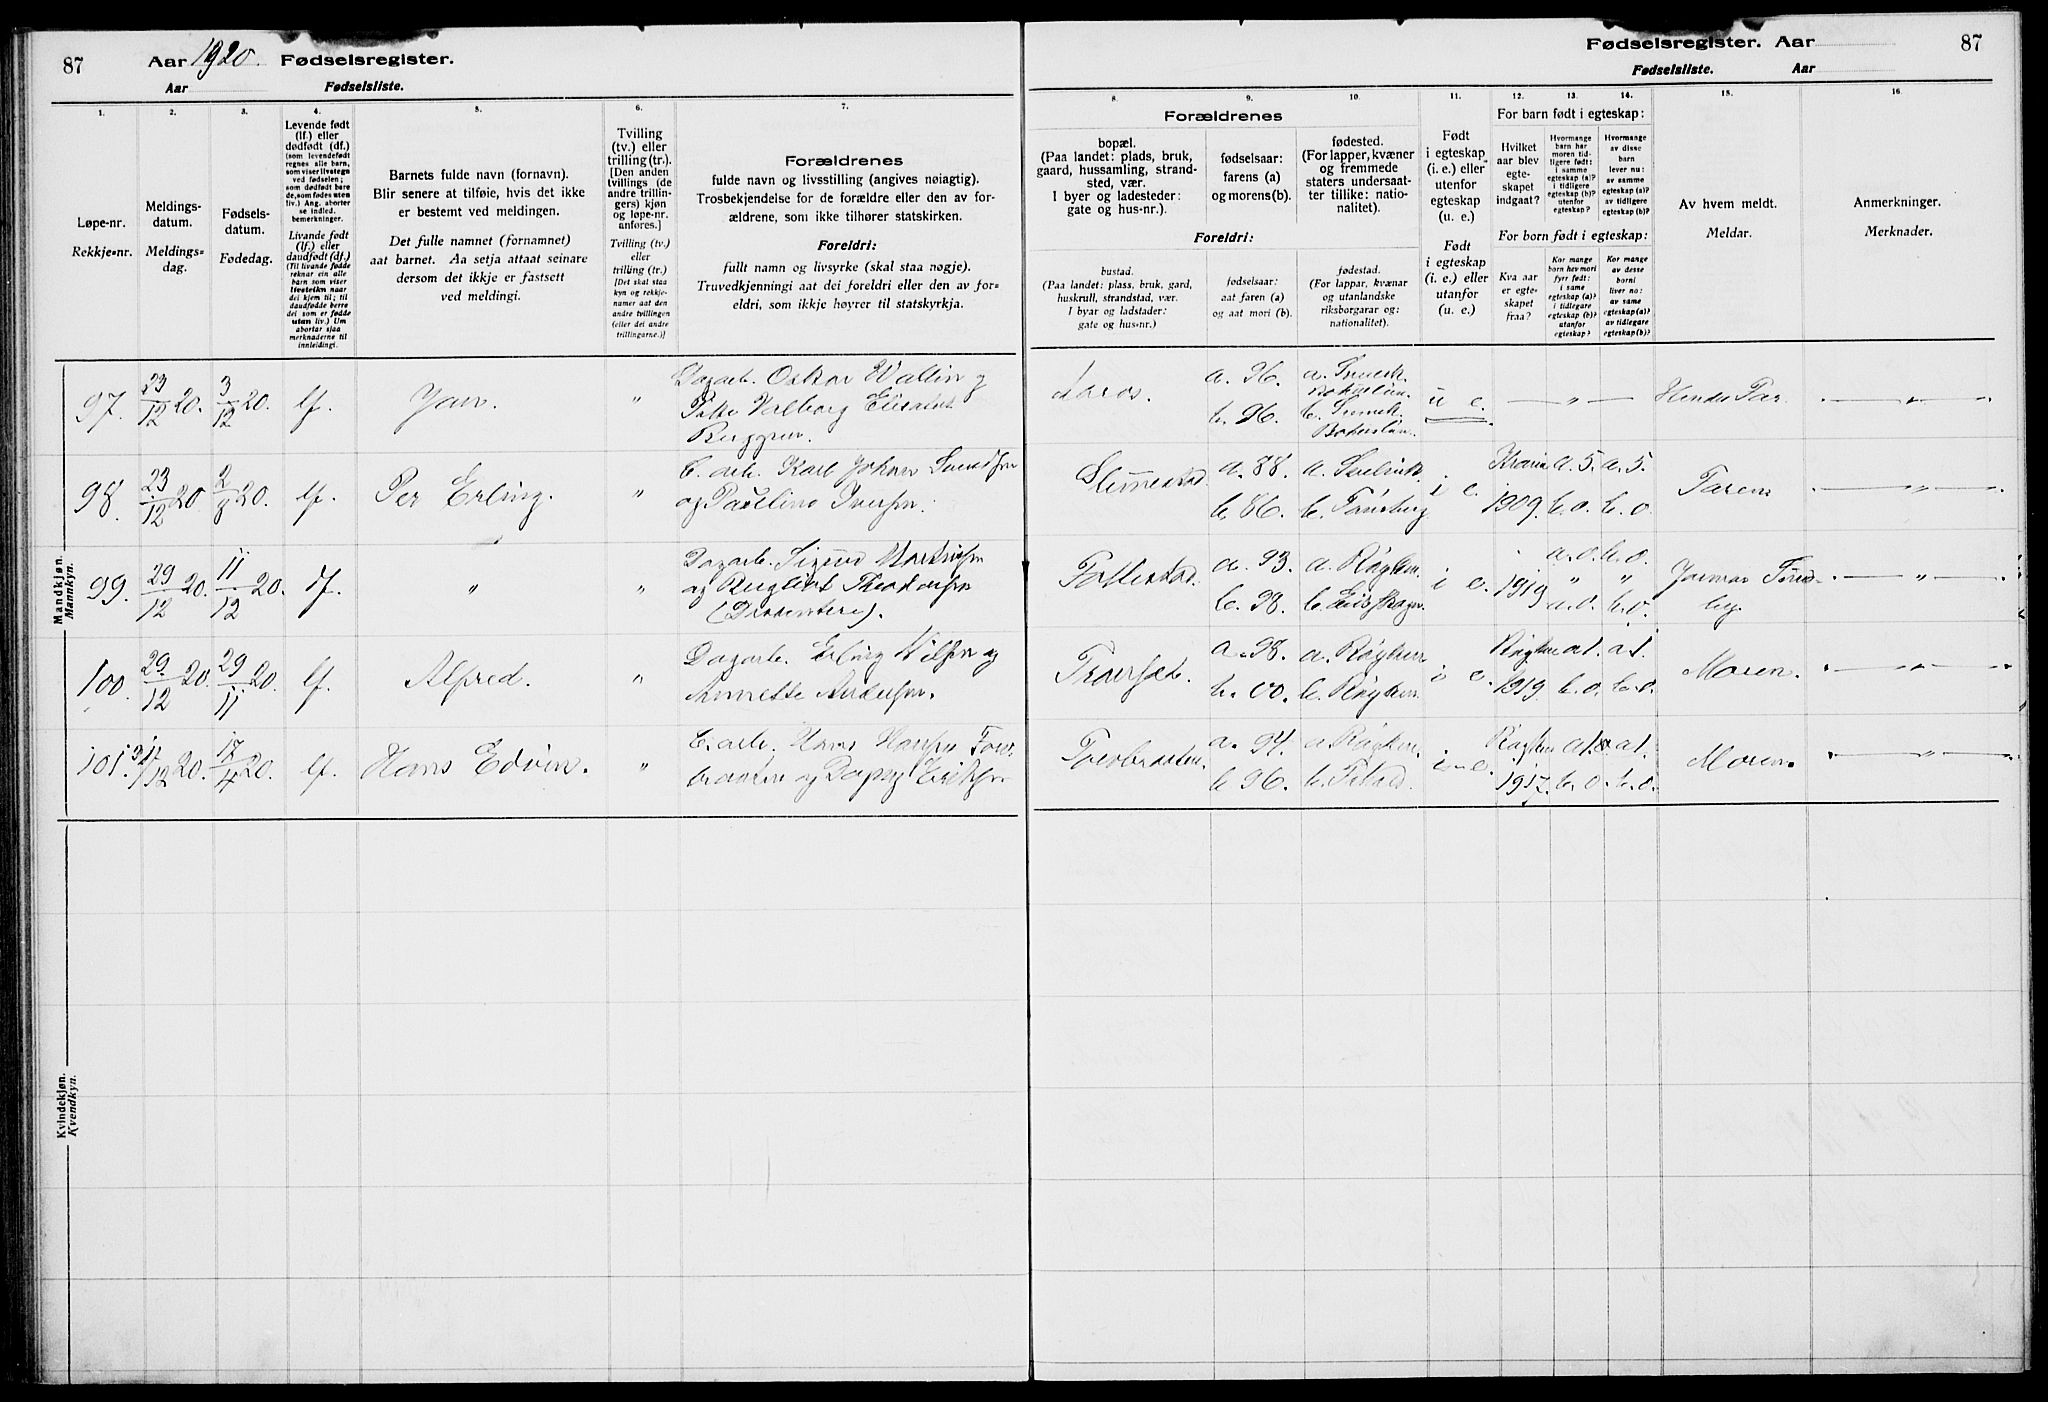 87
Aar 1920. Fødselsregister.
Aar Fødselsliste.
Fødselsregister. Aar
87
Fødselsliste. Aar
1.
Løpe-nr.
Rekkje=nr.
2.
Meldings-
datum.
Meldings=
dag.
3.
Fødsels-
datum.
Fødedag.
4.
Levende født
(lf.) eller
dødfødt (df.)
(som levendefødt
regnes alle barn,
som viser livstegn
ved fødselen;
som dødfødt bare
de, som fødes uten
liv.) Ang. aborter
se indled.
bemerkninger.
Livande født
(lf.) eller
daudfødt (df.)
(Til livande fødde
reknar ein alle
barn som viser
livsteikn naar
dei kjem til; til
daudfødde berre
dei som er fødde
utan liv.) Um
abortar sjaa
merknaderne til
innleidingi.
5.
Barnets fulde navn (fornavn).
Blir senere at tilføie, hvis det ikke
er bestemt ved meldingen.
Det fulle namnet (fornamnet)
aat barnet. Aa setja attaat seinare
dersom det ikkje er fastsett
ved meldingi.
6.
Tvilling
(tv.) eller
trilling (tr.).
[Den anden
tvillings (de
andre trillin-
gers) kjøn
og løpe-nr.
anføres.]
Tvilling (tv.)
eller
trilling (tr.)
[Det skal staa
kyn og rekkje-
numer aat den
andre tvillingen
(eller dei andre
trillingarne.)]
7.
Forældrenes
fulde navn og livsstilling (angives nøiagtig).
Trosbekjendelse for de forældre eller den av for-
ældrene, som ikke tilhører statskirken.
Foreldri:
fullt namn og livsyrke (skal staa nøgje).
Truvedkjenningi aat dei foreldri eller den av for=
eldri, som ikkje høyrer til statskyrkja.
Forældrenes
8.
bopæl.
(Paa landet: plads, bruk,
gaard, hussamling, strand-
sted, vær.
I byer og ladesteder:
gate og hus-nr.).
9.
fødselsaar:
farens (a)
og morens (b).
10.
fødested.
(For lapper, kvæner
og fremmede
staters undersaat-
ter tillike: natio-
nalitet).
Foreldri:
bustad.
(Paa landet: plass, bruk, gard,
huskrull, strandstad, vær.
I byar og ladstader:
gate og hus=nr.)
fødselsaar:
aat faren (a)
og aat mori (b).
fødestad.
(For lappar, kvænar
og utanlandske
riksborgarar og:
nationalitet).
11.
Født
i egteskap
(i. e.) eller
utenfor
egteskap
(u. e.)
Født
i egteskap
(i. e.) eller
utanfor
(u. e.)
For barn født i egteskap:
12.
Hvilket
aar blev
egte-
skapet
indgaat?
13.
Hvormange
barn har
moren tid-
ligere født:
i samme
egteskap (a)?
i tidligere
egteskap (b)?
utenfor
egteskap?
14.
Hvormange
av disse
barn
lever nu:
av samme
egteskap (a)?
av tidligere
egteskap (b)?
For born født i egteskap:
Kva aar
er egte-
skapet
fraa?
Kor mange
born hev mori
fyrr født:
i same
egteskap (a)?
i tidlegare
egteskap (b)?
utanfor
egteskap?
Kor mange
av desse
borni
liver no:
av same
egteskap (a)?
av tidlegare
egteskap (b)?
15.
Av hvem meldt.
Meldar.
16.
Anmerkninger.
Merknader.
Mandkjøn.
Mannkyn.
97. 23/12 20. 3/12 20. lf. Jan. " Dagarb. Oskar Wallin og
Valborg
Berggren.
a. 96. b. 96. u e. — " —
98. 23/12 20 2/8 20. lf. Per Erling. " Karl Johan Svendsen
og Pauline Iversen.
Slemmestad a. 88. b. 86. a. Svelvik. b. Tønsberg i e. 1909. a. 5. b. 0. a. 5. b. 0. Faren — " —
99. 29/12 20. 11/12 20. df. " " Dagarb. Sigurd
og
a. 93. b. 98. a. Røyken. i e. 1919 — " —
100. 29/12 20. 29/11 20. lf. Alfred. " Dagarb. Erling Nilsen og
Annette Andersen.
a. 98. b. 00. a. Røyken b. Røyken. i e. Røyken 1919. a 1. b. 0. a 1. b. 0. Moren. — " —
101. 31/12 20. 17/4 20. lf. Hans Edvin. " Hans Hansen
og Dagny Eriksen
a. 94. b 96. a Røyken i e. Røyken 1917. b. 0. a 1. b. 0. Moren. — " —
Kvindekjøn.
Kvendkyn.